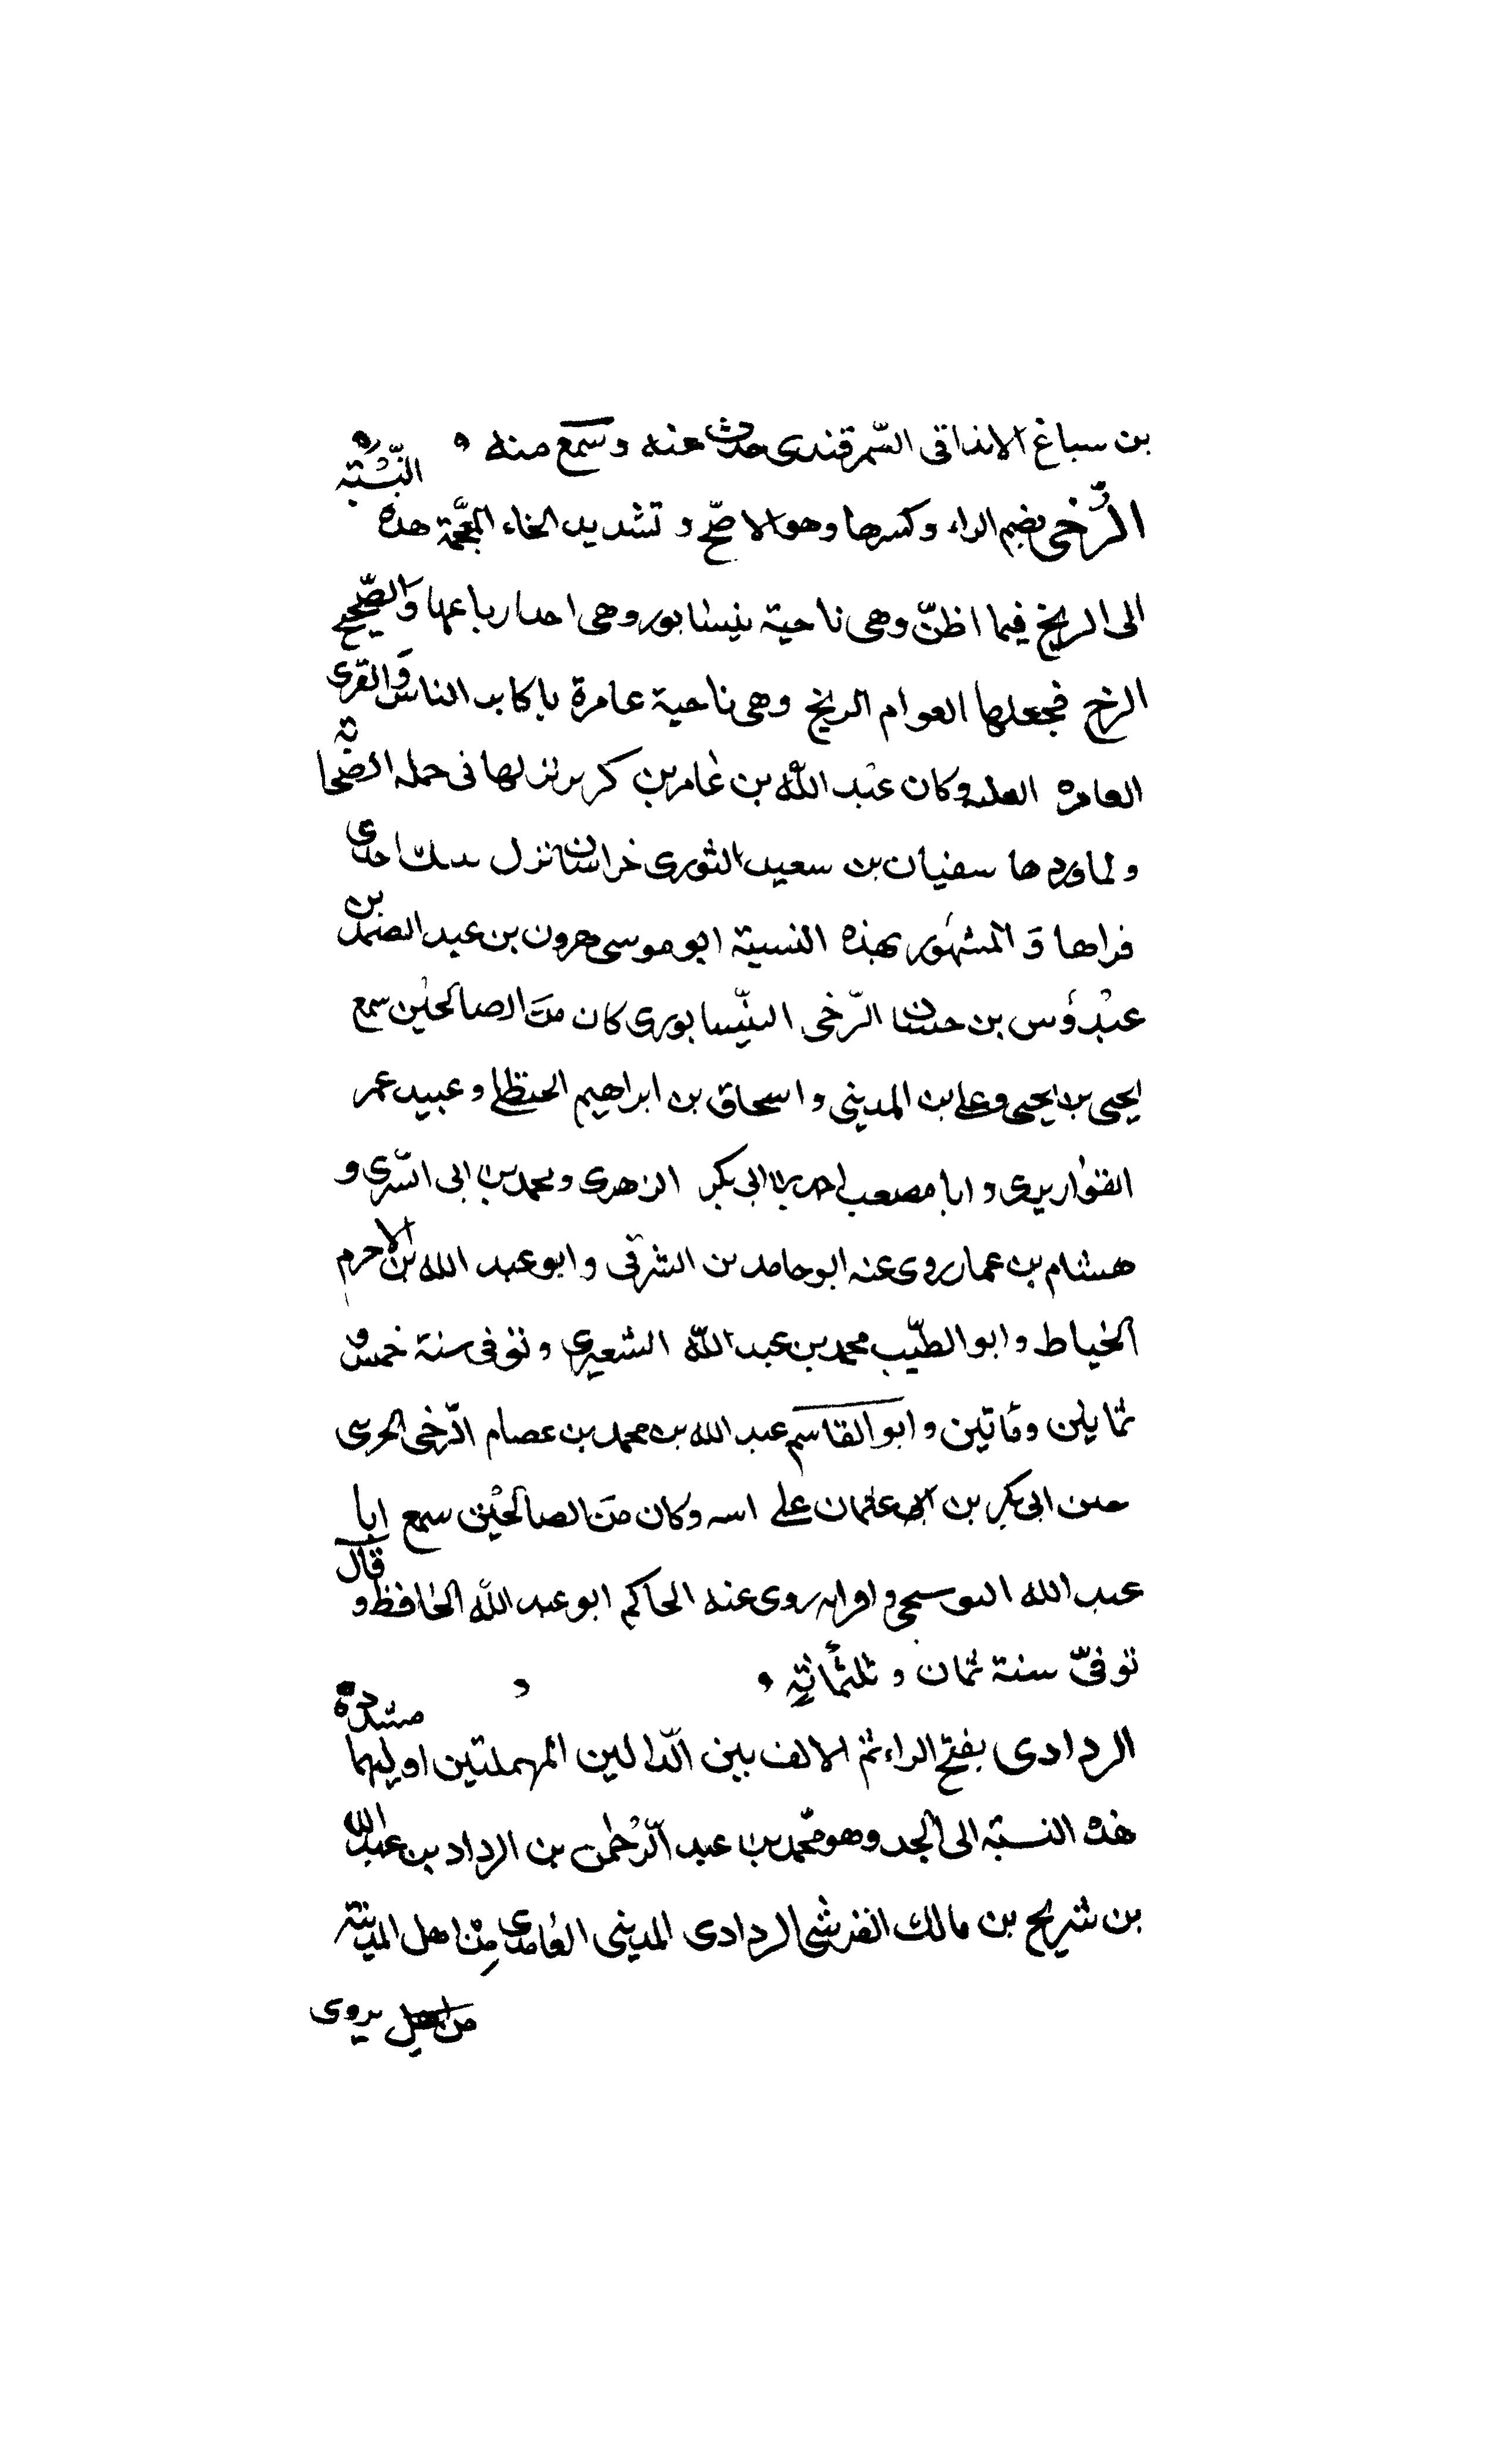 بن سباغ الانداقى السّمرقندى حدث عنه وسمع منه
الرّخى بضم الراء وكسرها وهو الاصحّ و تشديد الخاء المعجمة هذه النّسبة
الى الريخ فيما اظنّ وهى ناحية بنيسابور وهى احد ارباعها والصّحيح
الرخ فجعلها العوام الريخ وهى ناحية عامرة باكابر الناس والقرى
العامره وكان عبد الله بن عامر بن كريز نزلها فى حمله الصحابة
ولما وردها سفيان بن سعيد الثورى خراسان نزل احدى
قراها وَ المشهور بهذه النسبة ابو موسى هرون بن عبد الصمد بن
عبدوس بن حسان الرّخى النيّسابورى كان من الصالحين سمع
يحيى بن يحيى وعلى بن المدينى واسحاق بن ابراهيم الحنظلى وعبيد عمر
القواريرى وابا مصعب احمد بن ابى بكر الزهرى ومحمد بن ابى السّرى و
هشام بن عمار روى عنه ابو حامد بن الشرقى وابو عبد الله بن الاخرم
الخياط وابو الطيّب محمد بن عبد الله الشعيرى وتوفى سنة خمس و
ثمانين ومأتين وابو القاسم عبد الله بن محمد بن عصام الرّخى
ابى بكر بن ابى عثمان على وكان من الصالحين سمع ابا
عبد الله البوسنجى واقرانه روى عنه الحاكم ابو عبد الله الحافظ و قال
توفىّ سنة ثمان و ثلثمائة
الردادى بفتح الراء ثم الالف بين الدّالين المهملتين اوليهما مشددة
هذه النسبة الى الجد وهو محمد بن عبد الرّحمن بن الرداد بن عبد الله
بن شريح بن مالك القرشى الردادى المدينى العامرى من اهل المدينة
يروى